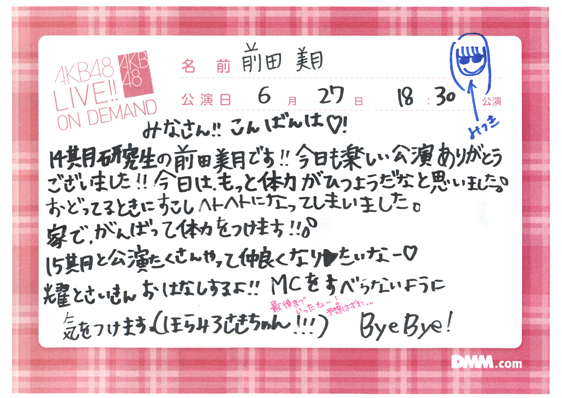 AKB48
LIVE!!
ON DEMAND
AKB
48
名 前 前田 美月
公演日 6 月 27 日 18:30 公演
みつき
みなさん!! こんばんは♡!
14期研究生の前田美月です!! 今日も楽しい公演ありがとう
ございました!! 今日は、もっと体力がひつようだなと思いました。
おどってるときにすこしヘトヘトになってしまいました。
家で、がんばって体力をつけます!!。
15期と公演たくさんやって仲良くなりたいなー♡
耀とさいきんおはなしするよ!! MCをすべらないように
最後まで
いったねー!
予想はずれ...
気をつけます。(ほらみろさきちゃん!!!) ByeBye!
DMM.com